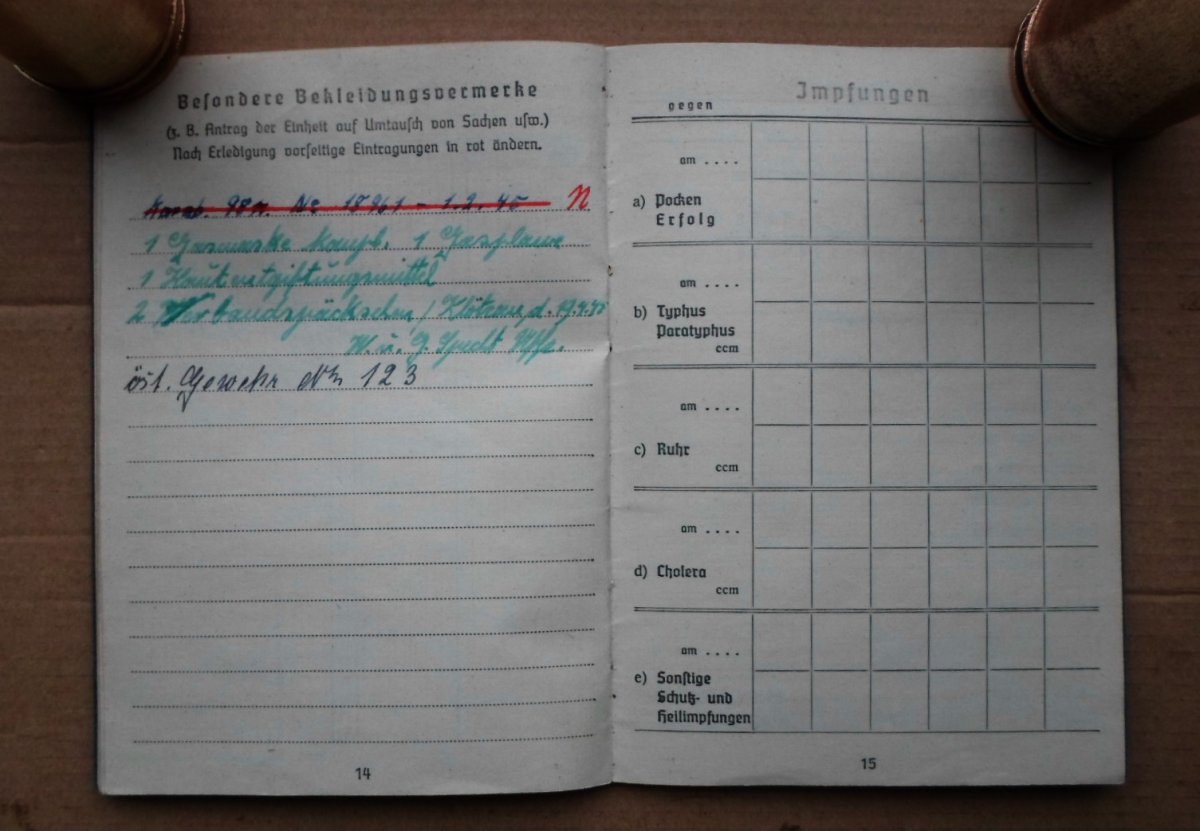 Besondere Bekleidungsvermerke
(z. B. Antrag der Einheit auf Umtausch von Sachen usw.)
Nach Erledigung vorseitige Eintragungen in rot ändern.
98 No 1.2.45 N
1 Gasmaske kompl. 1 Gasplane
1 Hautentgiftungsmittel
2 Verbandspäckchen d. 19.4.45
W. u. G.
öst. Gewehr Nr 123
14
Impfungen
gegen
am ....
a) Pocken
Erfolg
am ....
b) Typhus
Paratyphus
ccm
am ....
c) Ruhr
ccm
am ....
d) Cholera
ccm
am ....
e) Sonstige
Schutz- und
Heilimpfungen
15